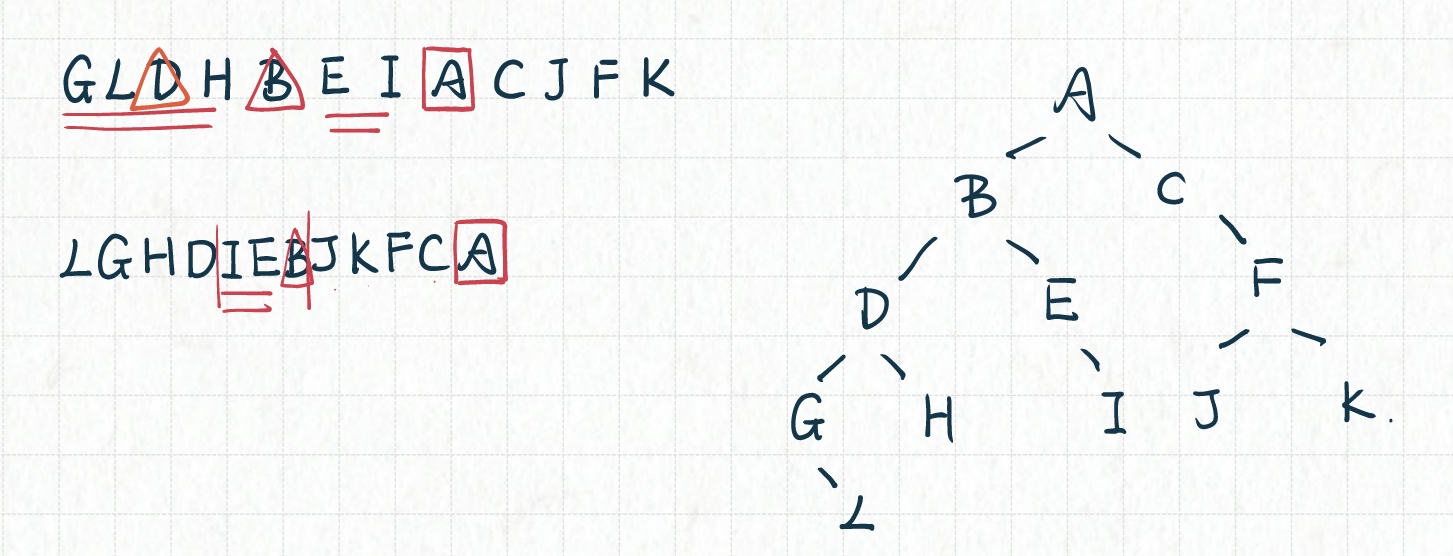 GLDHBEIACJFK
LGHDIEBJKFCA
A
B C
D E F
G H I J K.
L